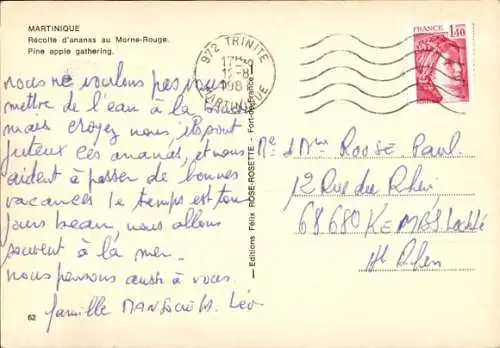 MARTINIQUE
Récolte d'ananas au Morne-Rouge.
Pine apple gathering.
nous ne voulons pas vous
mettre de l'eau à la
mais croyez nous, ils sont
juteux ces ananas, et nous
aident à passer de bonnes
vacances le temps est tou
jours beau, nous allons
souvent à la mer.
nous pensons aussi à vous.
famille Léo
62
Editions Félix ROSE-ROSETTE - Fort-de-France
972 TRINITE
12-8
MARTINIQUE
FRANCE
1,40
Mme ROOSE Paul
12 Rue du Rhin
68680 KEMBS Loechlé
Ht Rhin